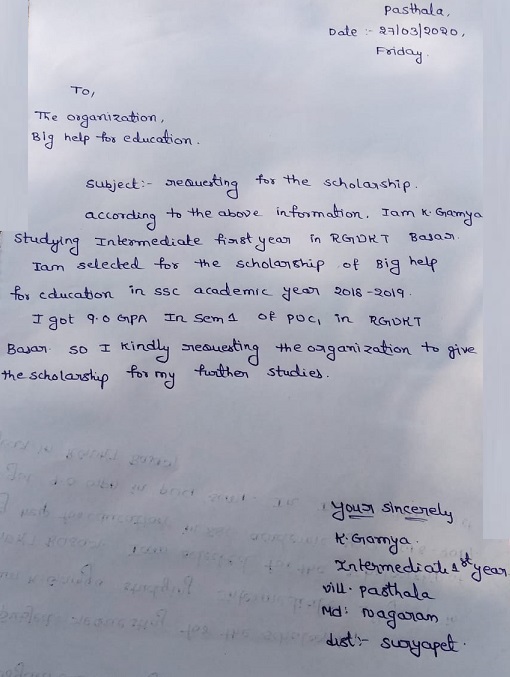 Pasthala,
Date :- 27/03/2020,
Friday.
To,
The organization,
Big help for education.
Subject:- requesting for the scholarship.
according to the above information. Iam K. Gamya
Studying Intermediate first year in RGUKT Basar.
Iam selected for the scholarship of Big help
for education in ssc academic year 2018-2019.
I got 9.0 GPA In Sem 1 of PUC1 in RGUKT
Basar. so I kindly requesting the organization to give
the scholarship for my further studies.
your sincerely
K. Gamya.
Intermediate 1st year
vill. pasthala
Md: Nagaram
dist:- suryapet.